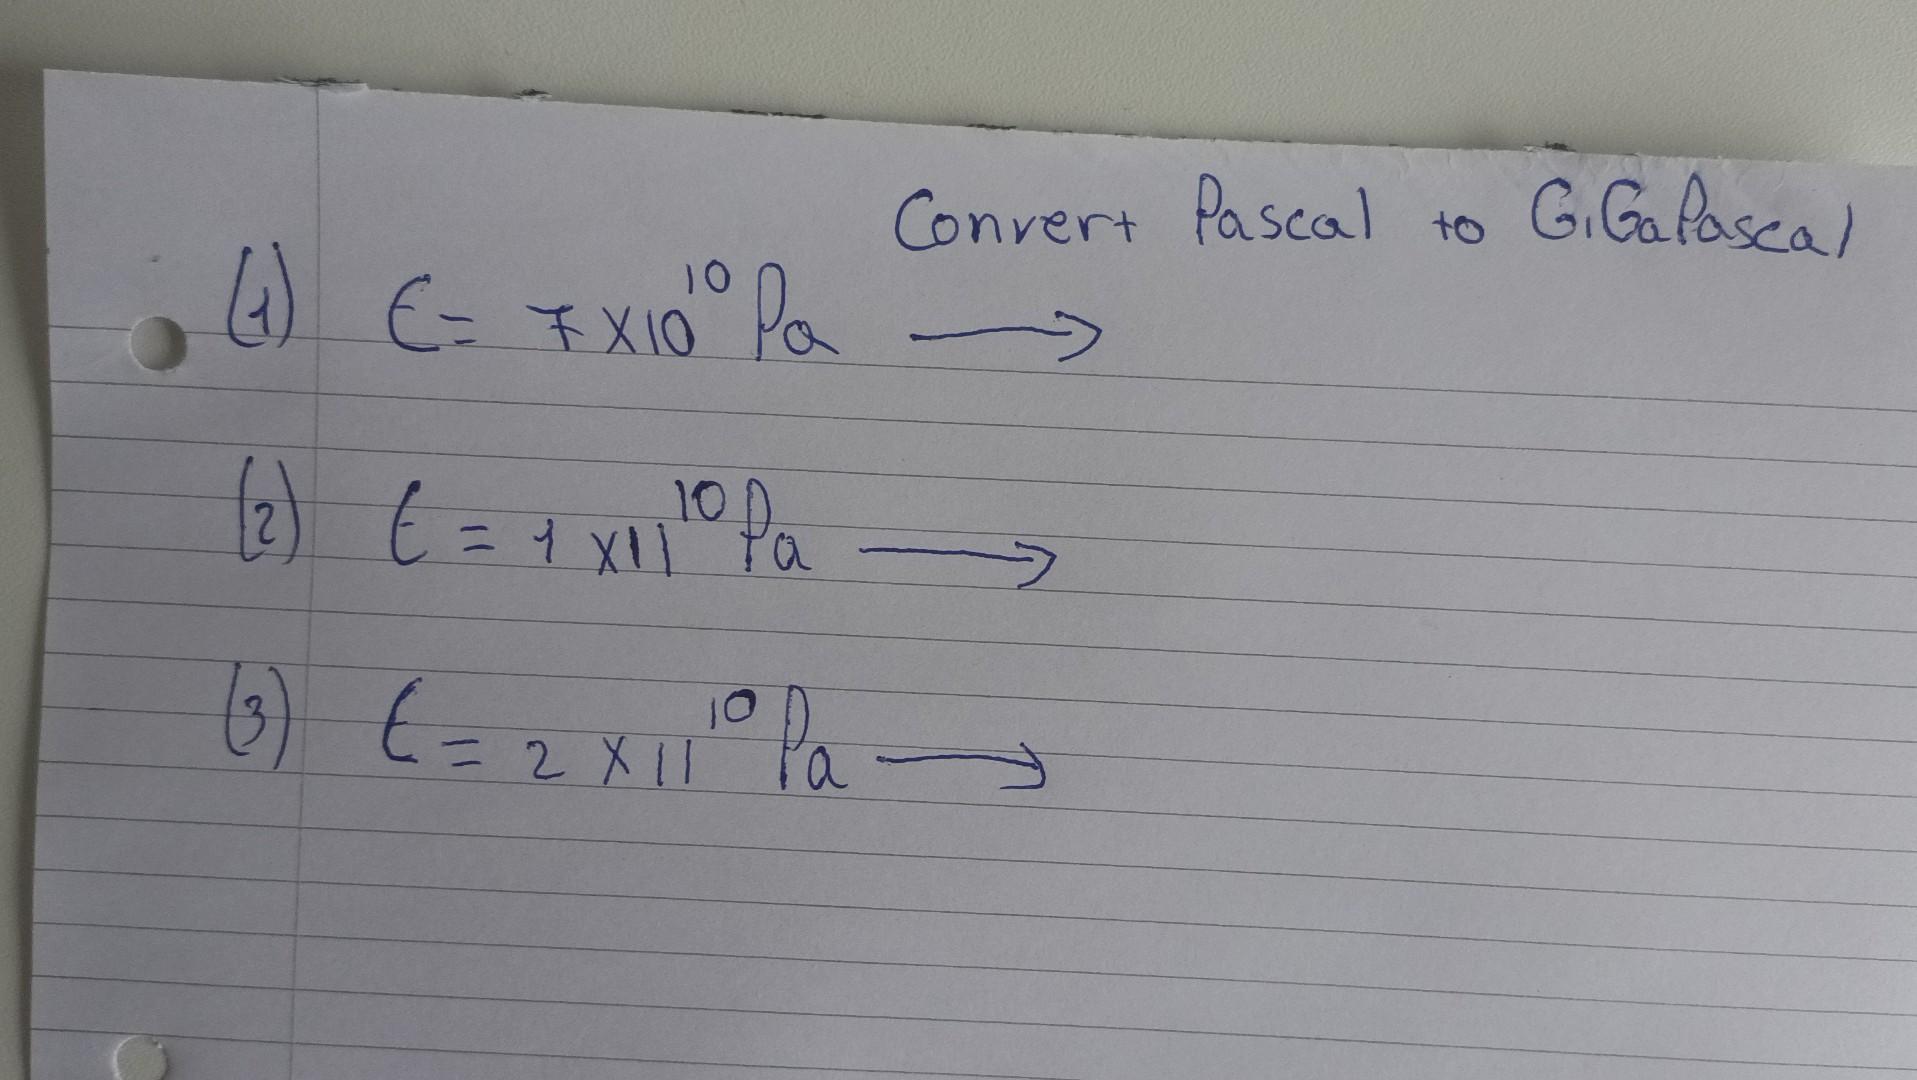 Convert Pascal to GiGaPascal
(1) E = 7 x 10¹⁰ Pa →
(2) E = 1 x 11¹⁰ Pa →
(3) E = 2 x 11¹⁰ Pa →